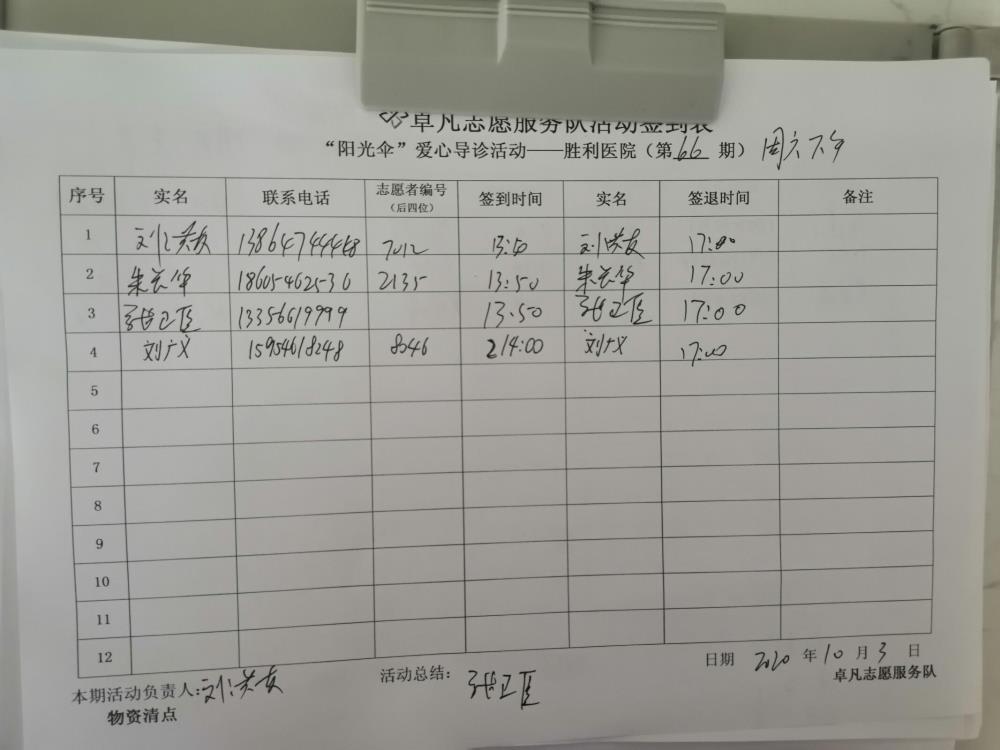 卓凡志愿服务队活动签到表
“阳光伞”爱心导诊活动——胜利医院（第66期） 周六下午
序号 实名 联系电话 志愿者编号（后四位） 签到时间 实名 签退时间 备注
1 刘洪友 13864744468 7012 13:50 刘洪友 17:00
2 朱长华 18605462536 2135 13:50 朱长华 17:00
3 张卫臣 13356619999 13:50 张卫臣 17:00
4 刘广义 15954618248 8046 14:00 刘广义 17:00
5
6
7
8
9
10
11
12
日期 2020年10月3日
本期活动负责人：刘洪友 活动总结： 张卫臣 卓凡志愿服务队
物资清点